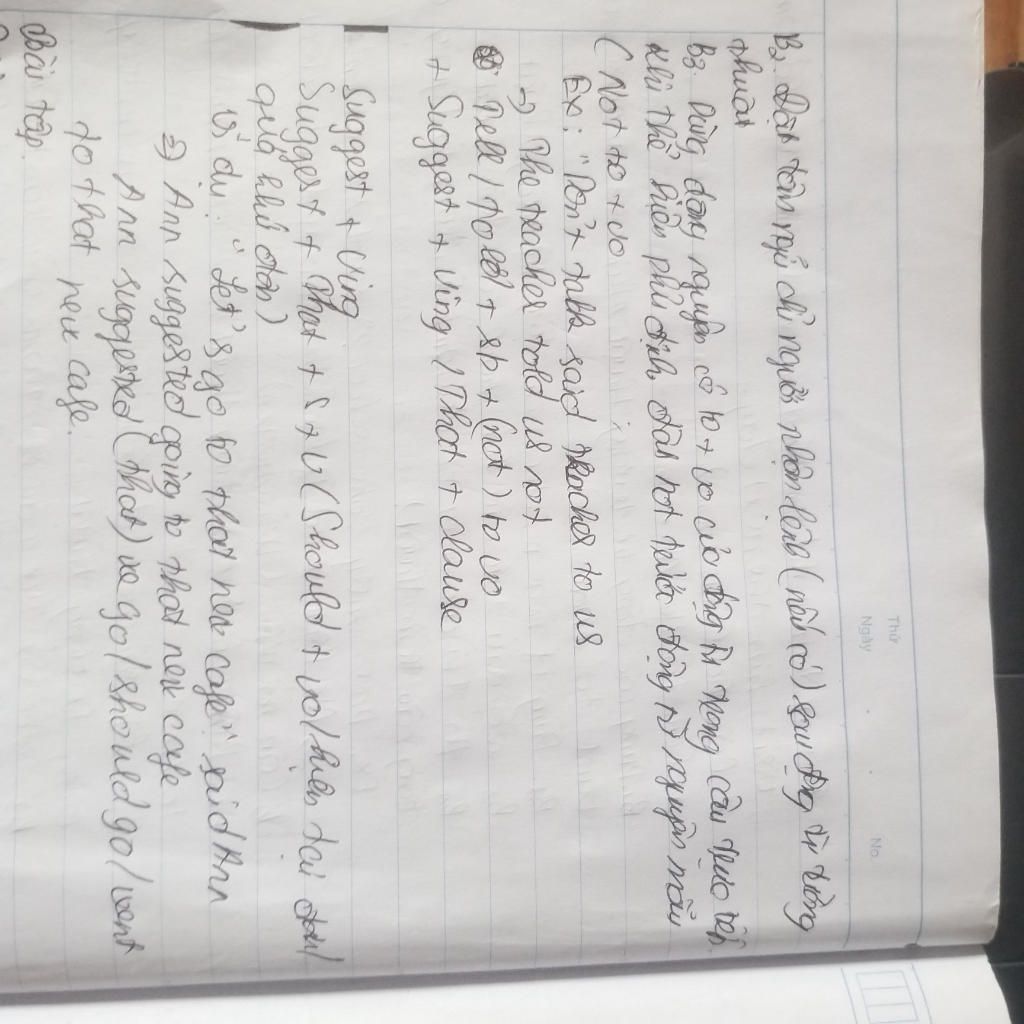 Thứ
Ngày
No.
B2 Đặt tân ngữ chỉ người nhận lệnh (nếu có) sau động từ tường
thuật
B3. Dùng dạng nguyên có to + vo của động từ trong câu trực tiếp.
Khi thể hiện phủ định, đặt not trước động từ nguyên mẫu
(Not to + vo
Ex: "Don't talk said teacher to us
=> The teacher told us not
Tell / told + sb + (not) to vo
+ Suggest + Ving / That + clause
Suggest + Ving
Suggest + That + s + v (Should + vo / hiện tại đơn /
quá khứ đơn)
Ví dụ: "Let's go to that new cafe" said Ann
=> Ann suggested going to that new cafe
Ann suggested (that) we go / should go / went
to that new cafe.
Bài tập.